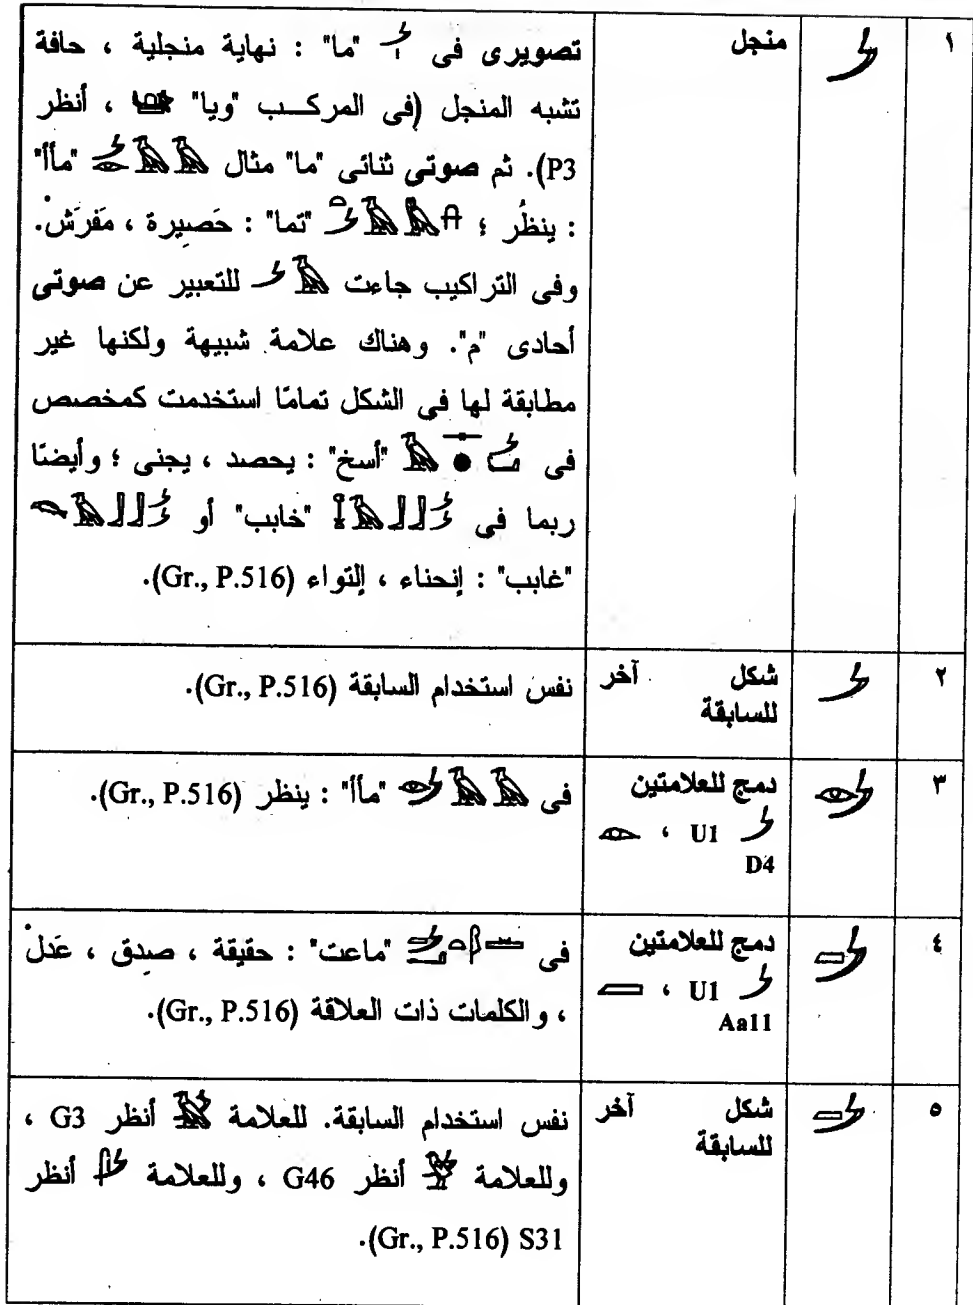 ١ منجل تصويرى فى 𓌳 "ما" : نهاية منجلية ، حافة
تشبه المنجل (فى المركب "ويا" ، أنظر
P3). ثم صوتى ثنائى "ما" مثال "مأأ"
: ينظُر ؛ "تما" : حَصيرة ، مَفرَش.
وفى التراكيب جاءت 𓌳𓅓 للتعبير عن صوتى
أحادى "م". وهناك علامة شبيهة ولكنها غير
مطابقة لها فى الشكل تمامًا استخدمت كمخصص
فى "أسخ" : يحصد ، يجنى ؛ وأيضًا
ربما فى "خابب" أو
"غابب" : إنحناء ، إلتواء (Gr., P.516).
٢ شكل آخر نفس استخدام السابقة (Gr., P.516).
للسابقة
٣ دمج للعلامتين فى "مأأ" : ينظر (Gr., P.516).
𓌳 U1 ، 𓁹
D4
٤ دمج للعلامتين فى "ماعت" : حقيقة ، صدق ، عَدلْ
𓌳 U1 ، 𓐙 ، والكلمات ذات العلاقة (Gr., P.516).
Aa11
٥ شكل آخر نفس استخدام السابقة. للعلامة أنظر G3 ،
للسابقة وللعلامة أنظر G46 ، وللعلامة أنظر
S31 (Gr., P.516).